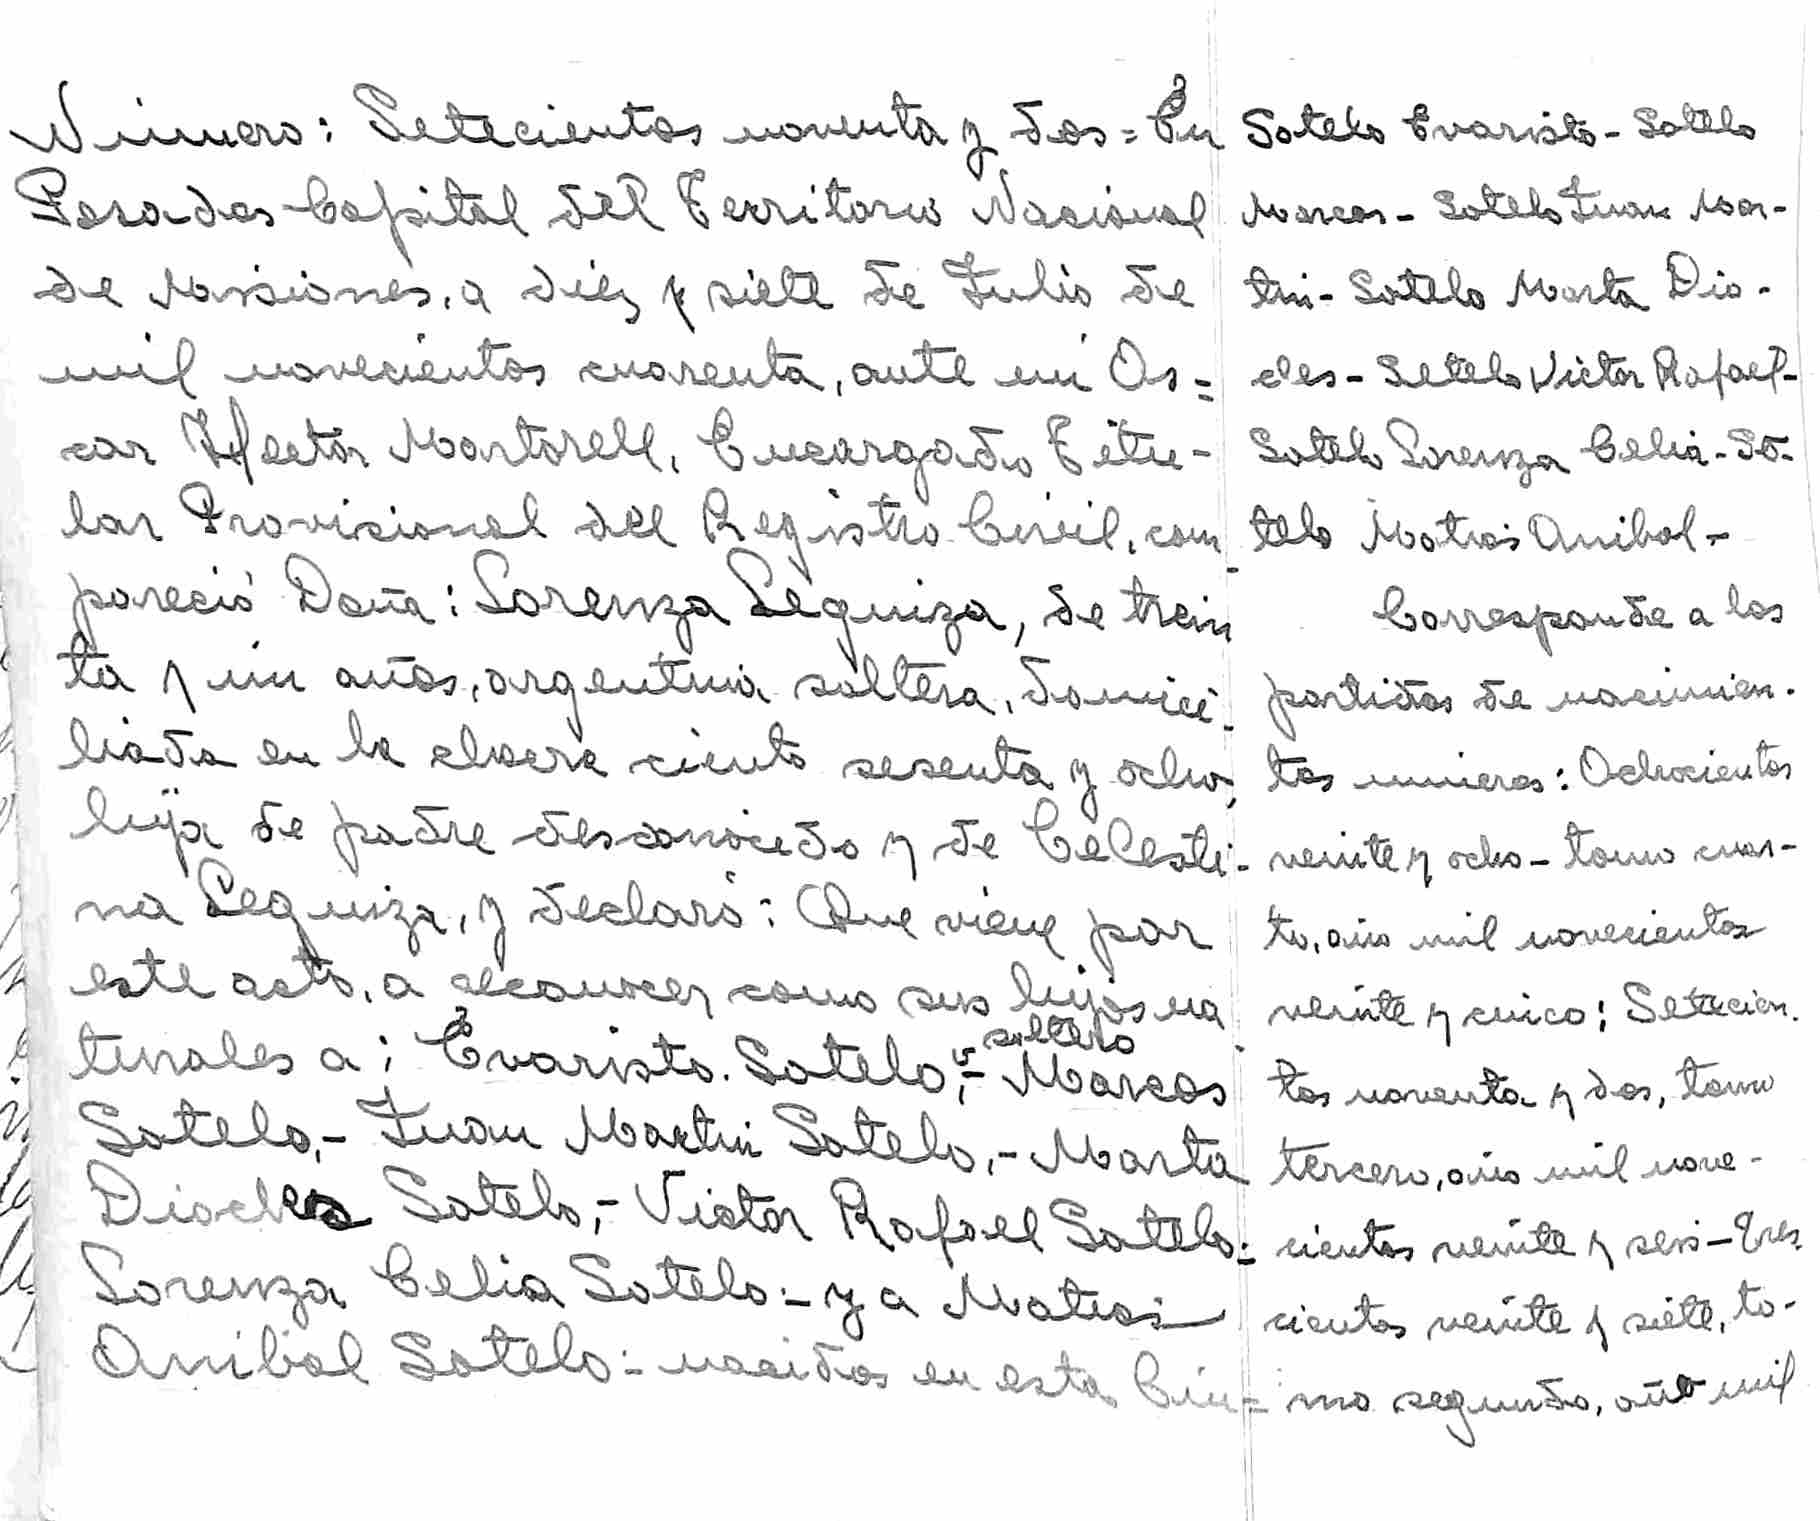 Número: Setecientos noventa y dos = En
Posadas Capital del Territorio Nacional
de Misiones, a diez y siete de Julio de
mil novecientos cuarenta, ante mi Os=
car Hector Martorell, Encargado Titu-
lar Provisional del Registro Civil, com
pareció Doña: Lorenza Leguiza, de trein
ta y un años, argentina soltera, domici-
liada en la chacra ciento sesenta y ocho,
hija de padre desconocido y de Celesti-
na Leguiza, y declaró: Que viene por
este acto, a reconocer como sus hijos na
soltero
turales a: Evaristo Sotelo,- Marcos
Sotelo,- Juan Martin Sotelo,- Marta
Sotelo,- Victor Rafael Sotelo:
Lorenza Celia Sotelo:- y a Matias
Anibal Sotelo:- nacidos en esta Ciu=
Sotelo Evaristo - Sotelo
Marcos - Sotelo Juan Mar-
tin - Sotelo Marta Dio-
cles - Sotelo Victor Rafael -
Sotelo Lorenza Celia - So-
telo Matias Anibal -
Corresponde a las
partidas de nacimien-
tos numeros: Ochocientos
veinte y ocho - tomo cuar-
to, año mil novecientos
veinte y cinco; Setecien-
tos noventa y dos, tomo
tercero, año mil nove-
cientos veinte y seis - Tres
cientos veinte y siete, to-
mo segundo, año mil